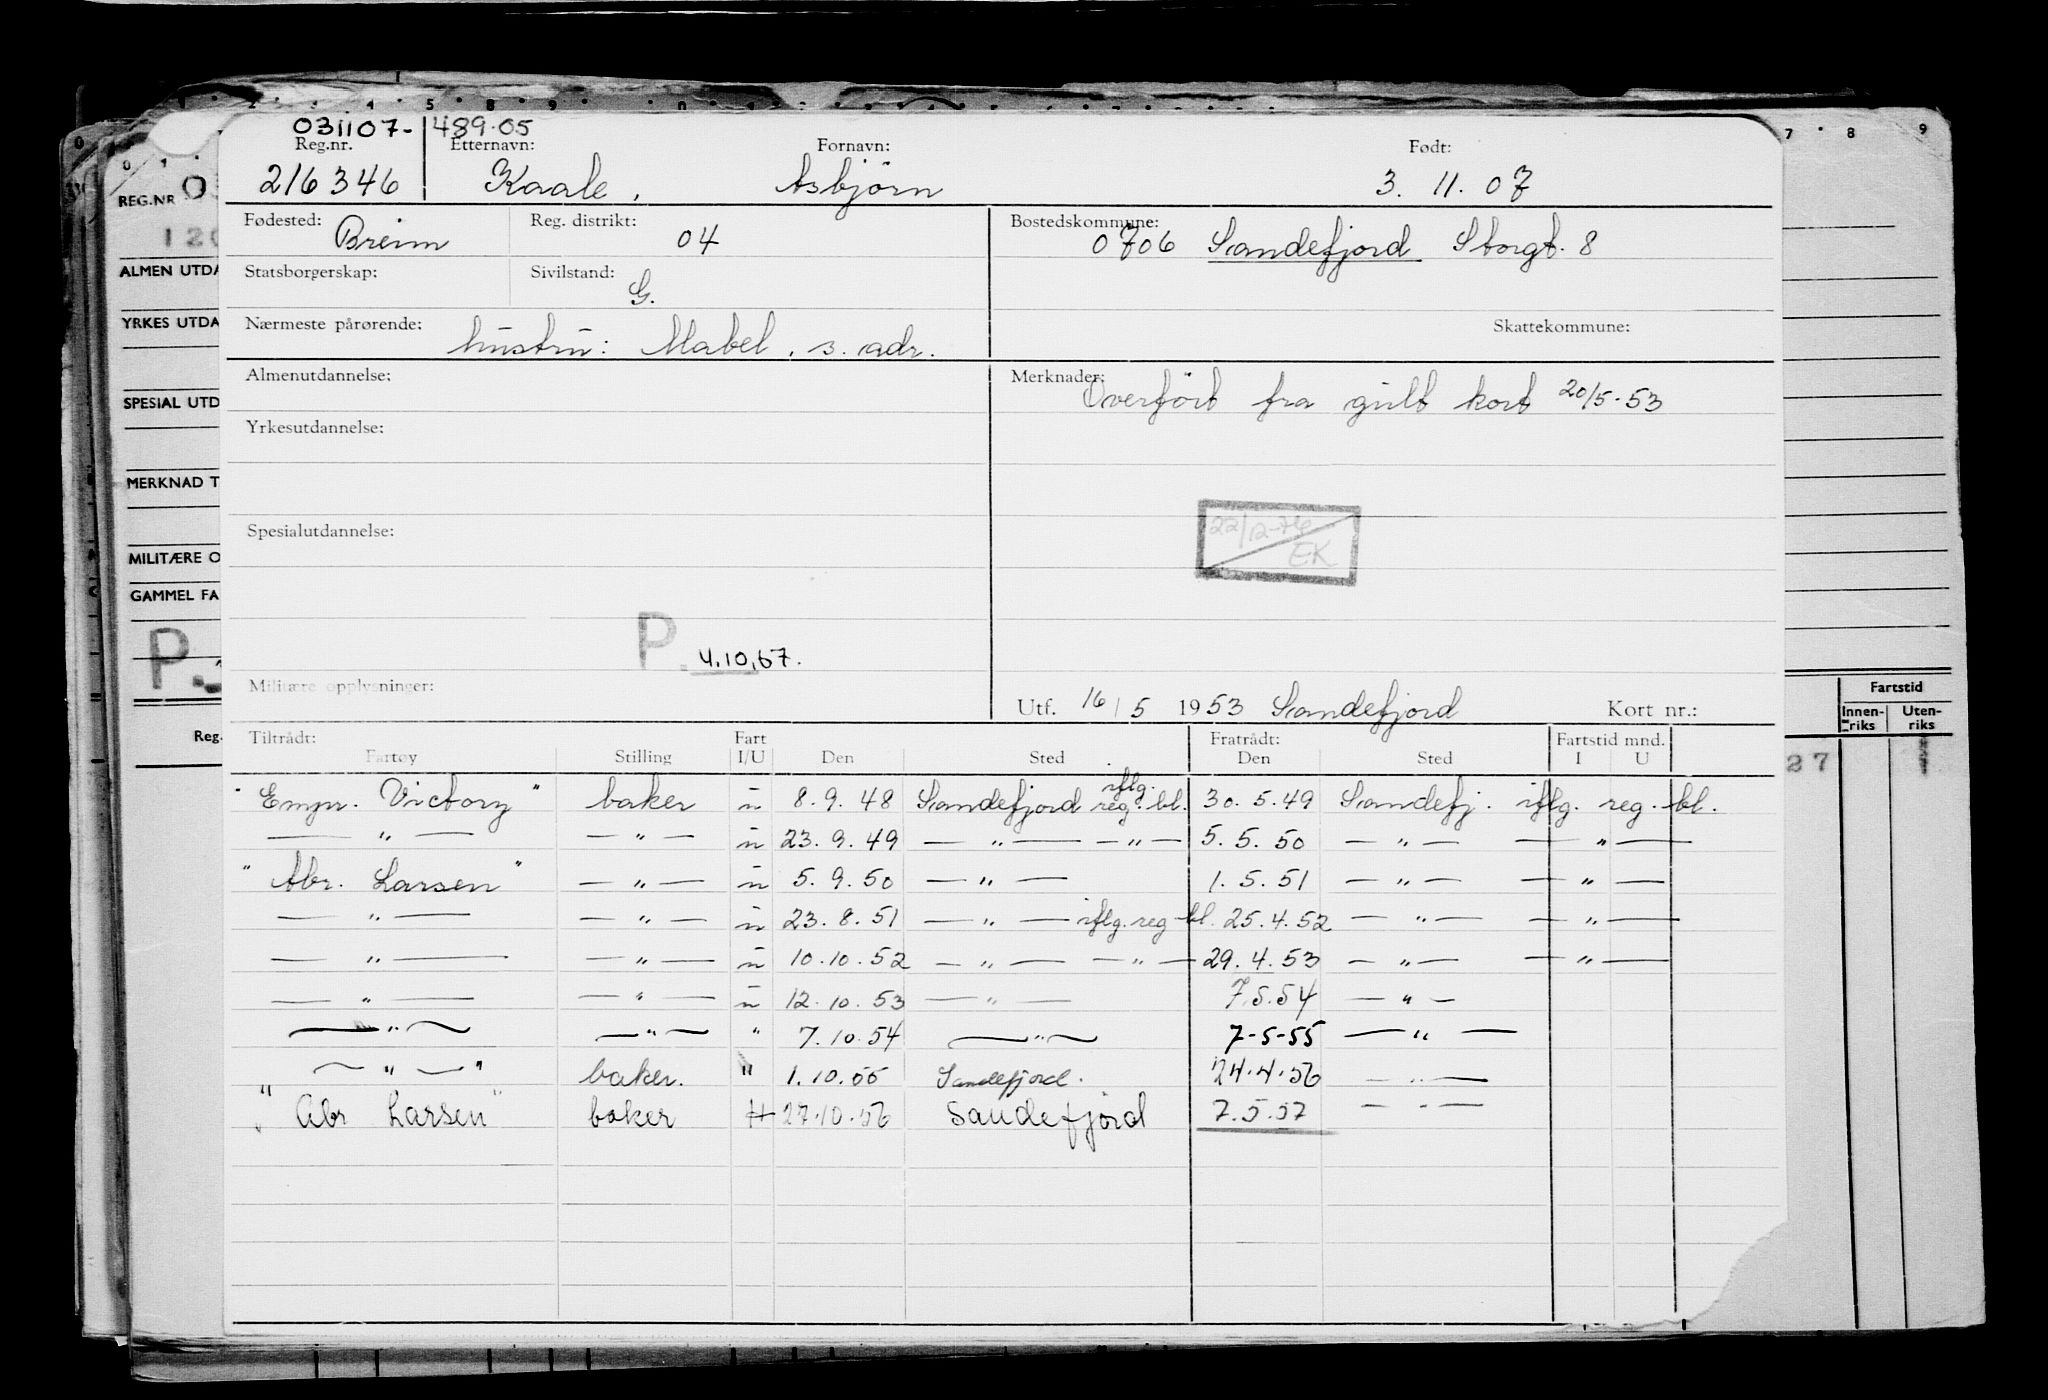 031107- 489.05
Reg.nr. Etternavn: Fornavn: Født:
216346 Kaale, Asbjørn 3. 11. 07
Fødested: Breim Reg. distrikt: 04 Bostedskommune: 0706 Sandefjord Storgt. 8
Statsborgerskap: Sivilstand: G.
Nærmeste pårørende: hustru: Mabel, s. adr. Skattekommune:
Almenutdannelse: Merknader: Overført fra gult kort 20/5-53
Yrkesutdannelse:
22/12-76 EK
Spesialutdannelse:
P. 4.10.67.
Militære opplysninger: Utf. 16/5 1953 Sandefjord Kort nr.:
Tiltrådt: Fart Fratrådt: Fartstid mnd.
Fartøy Stilling I/U Den Sted Den Sted I U
"Empr. Victory" baker u 8.9.48 Sandefjord iflg. reg. bl. 30.5.49 Sandefj. iflg. reg. bl.
— " — — " — u 23.9.49 — " — — " — 5.5.50 — " — — " —
"Abr. Larsen" — " — u 5.9.50 — " — 1.5.51 — " — — " —
— " — — " — u 23.8.51 — " — iflg. reg bl. 25.4.52 — " — — " —
— " — — " — u 10.10.52 — " — — " — 29.4.53 — " — — " —
— " — — " — u 12.10.53 — " — 7.5.54 — " —
— " — — " — " 7.10.54 — " — 7-5-55 — " —
— " — " baker. " 1.10.55 Sandefjord. 24.4.56 — " —
"Abr Larsen" baker 27.10.56 Sandefjord 7.5.57 — " —
REG.NR 0
120
ALMEN UTDA
YRKES UTDA
SPESIAL UTD
MERKNAD T
MILITÆRE O
GAMMEL FA
P.
Reg.
Fartstid
Innen-riks Uten-riks
27